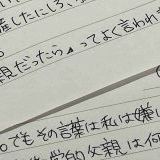 産したにしろ、
親だったら、ってよく言われ
。でもその言葉は私は嫌い
父親は何